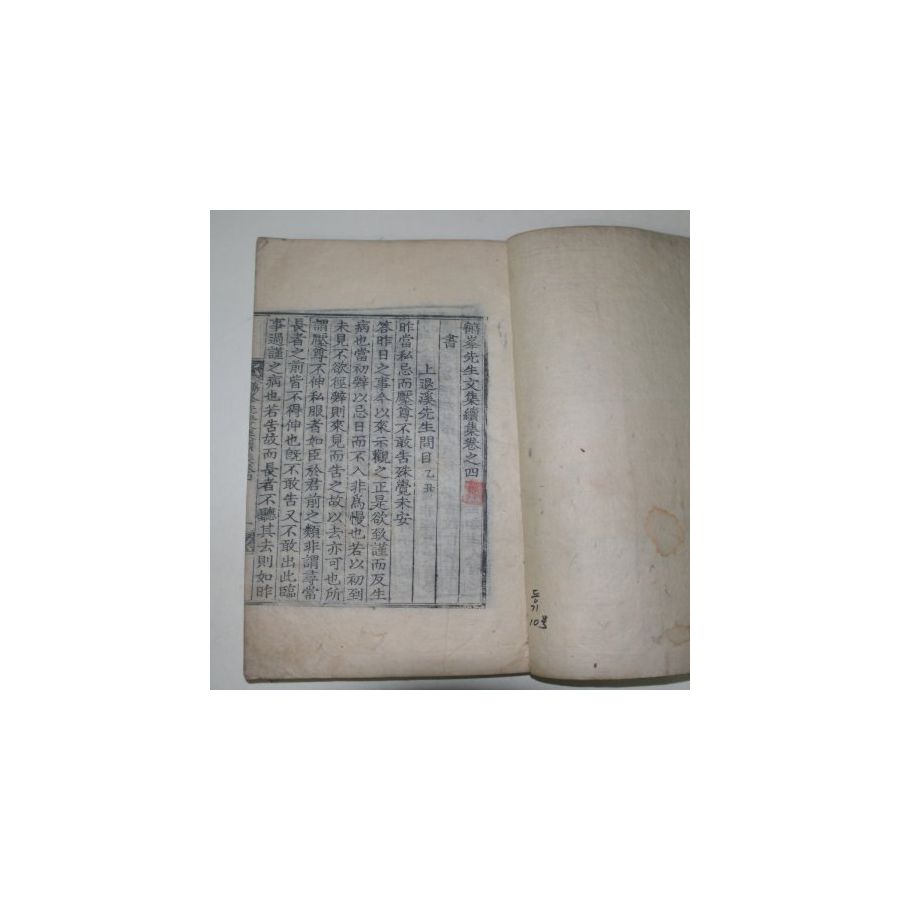 鶴峯先生文集續集卷之四
書
上退溪先生問目 乙丑
昨當私忌而壓尊不敢告殊覺未安
答昨日之事奉以來示觀之正是欲致謹而反生
病也當初辭以忌日而不入非爲慢也若以初到
未見不欲徑辭則來見而告之故以去亦可也所
謂壓尊不伸私服者如臣於君前之類非謂尋當
長者之前皆不得伸也旣不敢告又不敢出此臨
事過謹之病也若告故而長者不聽其去則如昨
등기
10본